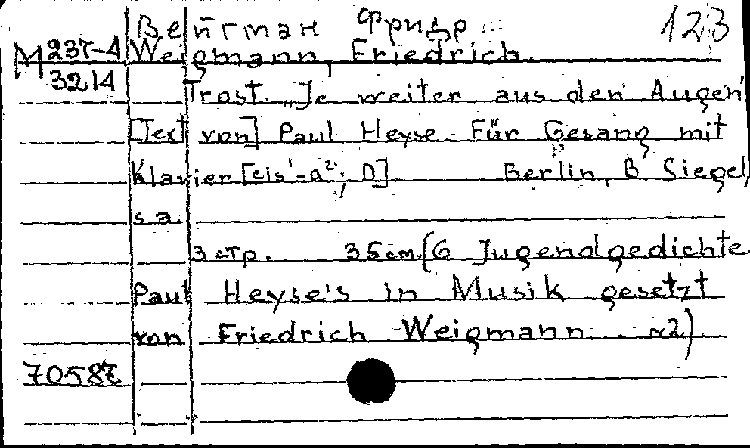 Вейгман Фридр... 123
М 237-4 Weigmann, Friedrich.
3214
Trost. „Je weiter aus den Augen
[Text von] Paul Heyse. Für Gesang mit
Klavier [cis¹-a²; D] Berlin, B Siegel,
s.a.
3 стр. 35 см. (6 Jugendgedichte
Paul Heyse's in Musik gesetzt
von Friedrich Weigmann. №2)
70587